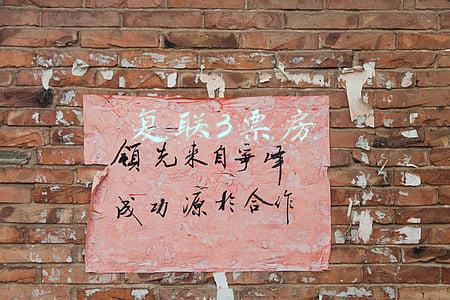 复联3票房
領先来自争峰
成功源於合作